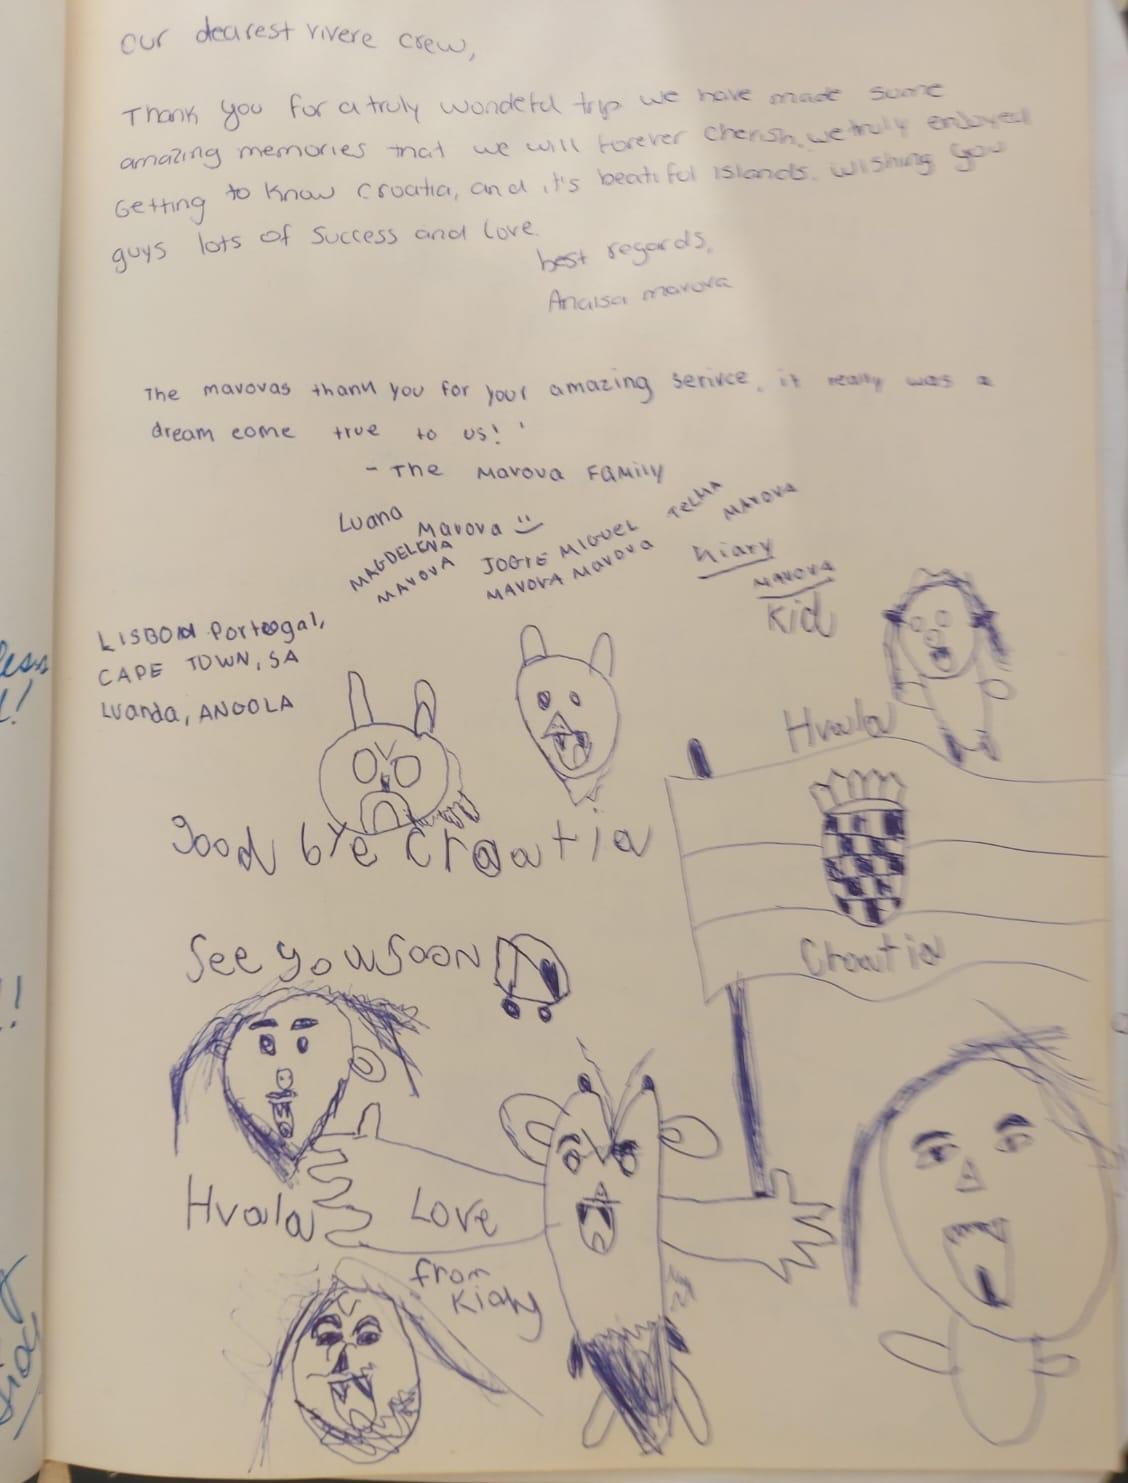 Our dearest vivere crew,
Thank you for a truly wondeful trip we have made some
amazing memories that we will forever cherish. we truly enjoyed
Getting to know Croatia, and it's beatiful islands. wishing you
guys lots of success and love.
best regards,
Analsa mavova
The mavovas thank you for your amazing serivce, it really was a
dream come true to us!
- The Mavova Family
Luana Mavova
TELMA MAVOVA
MAGDELENA MAVOVA
MIGUEL
MAVOVA Mavova
Kiary
MAVOVA
Kid
LISBON Porteogal,
CAPE TOWN, SA
Luanda, ANGOLA
Hvala
good bye Craatia
See you soon
Croatia
Hvala
Love
from
Kiary